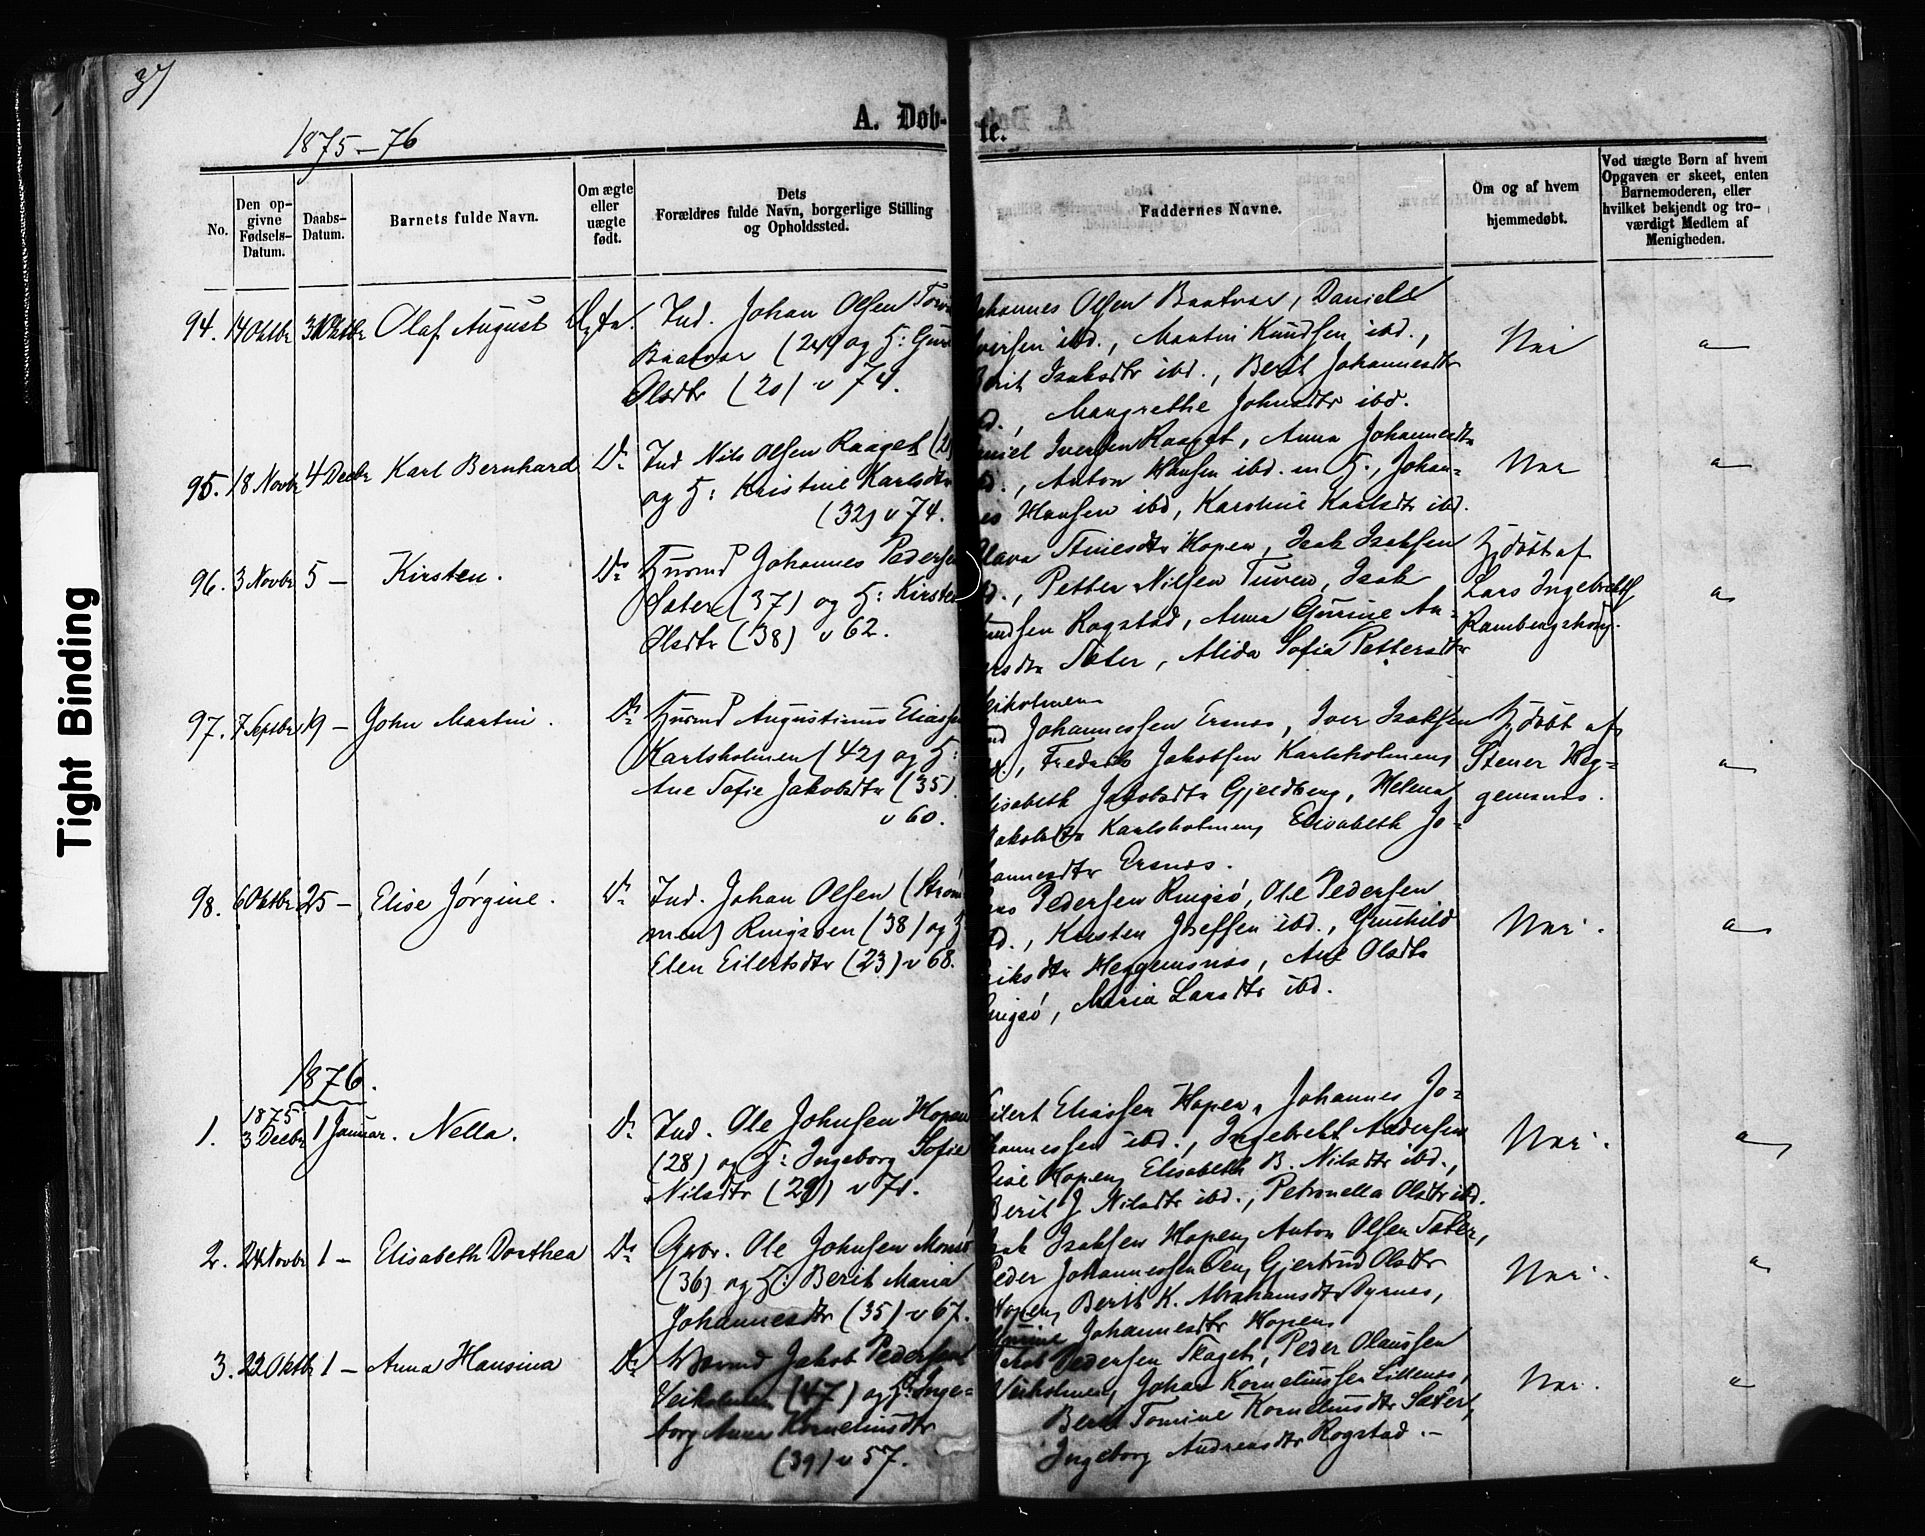 37
A. Døb-
te.
1875-76
No.
Den op-
givne
Fødsels-
Datum.
Daabs-
Datum.
Barnets fulde Navn.
Om ægte
eller
uægte
født.
Dets
Forældres fulde Navn, borgerlige Stilling
og Opholdssted.
Faddernes Navne.
Om og af hvem
hjemmedøbt.
Ved uægte Børn af hvem
Opgaven er skeet, enten
Barnemoderen, eller
hvilket bekjendt og tro-
værdigt Medlem af
Menigheden.
94. 14 Oktbr 31 Oktbr Olaf August Ægte. Ind. Johan Olsen
Baatvær (24) og H:
Olsdtr (20) v 74.
Johannes Olsen Baatvær, Daniel
Iversen ibd., Martin Knudsen ibd.,
Berit Isaksdtr ibd., Berit Johannesdtr
ibd., Mangrethe Johnsdtr ibd.
Nei
95. 18 Novbr 4 Decbr Karl Bernhard Do Ind Nils Olsen Raaget
og H: Kristine Karlsdtr
(32) v 74.
Daniel Iversen Raaget, Anna Johannesdtr
ibd., Anton Hansen ibd. m H., Johan-
nes Hansen ibd, Karstine Karlsdtr ibd.
Nei
96. 3 Novbr 5 - Kirsten. Do Husmd Johannes Pedersen
Sæter (37) og H: Kirsten
Olsdtr (38) v 62.
Olava Stinesdtr Hopen, Isak Isaksen
ibd., Petter Nilsen Tuven, Isak
Knudsen Rogstad, Anna Gurine An-
dersdtr Sæter, Alida Sofia Pettersdtr
Veiholmen
Hjdøbt af
Lars Ingebrektsen
Rambergshaug.
97. 7 Septbr 19 - John Martin. Do Husmd Augustinus Eliassen
Karlsholmen (42) og H:
Ane Sofie Jakobsdtr (35)
v 60.
Johannessen Ersnes, Iver Isaksen
Fredrik Jakobsen Karlsholmen,
Elisabeth Jakobsdtr Gjeldberg, Helena
Jakobsdtr Karlsholmen, Elisabeth Jo-
hannesdtr Ersnes.
Hjdøbt af
Stener Heg-
gemsnes.
98. 6 Oktbr 25 - Elise Jørgine. Do Ind. Johan Olsen (Strøm-
men) Ringsøen (38) og H:
Elen Eilertsdtr (23) v 68.
Pedersen Ringsø, Ole Pedersen
ibd., Kirsten Josefsen ibd., Grunhild
Eriksdtr Heggemsnes, Ane Olsdtr
Ringsø, Maria Larsdtr ibd.
Nei.
1876.
1. 1875
3 Decbr 1 Januar. Nella. Do Ind. Ole Johnsen Hopen
(28) og H: Ingeborg Sofie
Nilsdtr (29) v 71.
Eilert Eliassen Hopen, Johannes Jo-
hannessen ibd., Ingebrekt Andersen
Hopen, Elisabeth B. Nilsdtr ibd.,
Berit J Nilsdtr ibd., Petronella Olsdtr ibd.
Nei.
2. 24 Novbr 1 - Elisabeth Dorthea Do Gbr. Ole Johnsen
(36) og H: Berit Maria
Johannesdtr (35) v 67.
Isak Isaksen Hopen, Anton Olsen Sæter,
Peder Johannessen Oen, Gjertrud Olsdtr
Hopen, Berit K. Abrahamsdtr Dyrnes,
Johannesdtr Hopen
Nei.
3. 22 Oktbr 1 - Anna Hansina Do Jakob Pedersen
Veiholmen (47) og H: Inge-
borg Anna Kornelsdtr
(39) v 57.
Jakob Pedersen Skaget, Peder Olaussen
Veiholmen, Johan Korneliussen Lillenes,
Berit Tomine Korneliusdtr Sæter,
Ingeborg Andreasdtr Rogstad.-
Nei.
Tight Binding